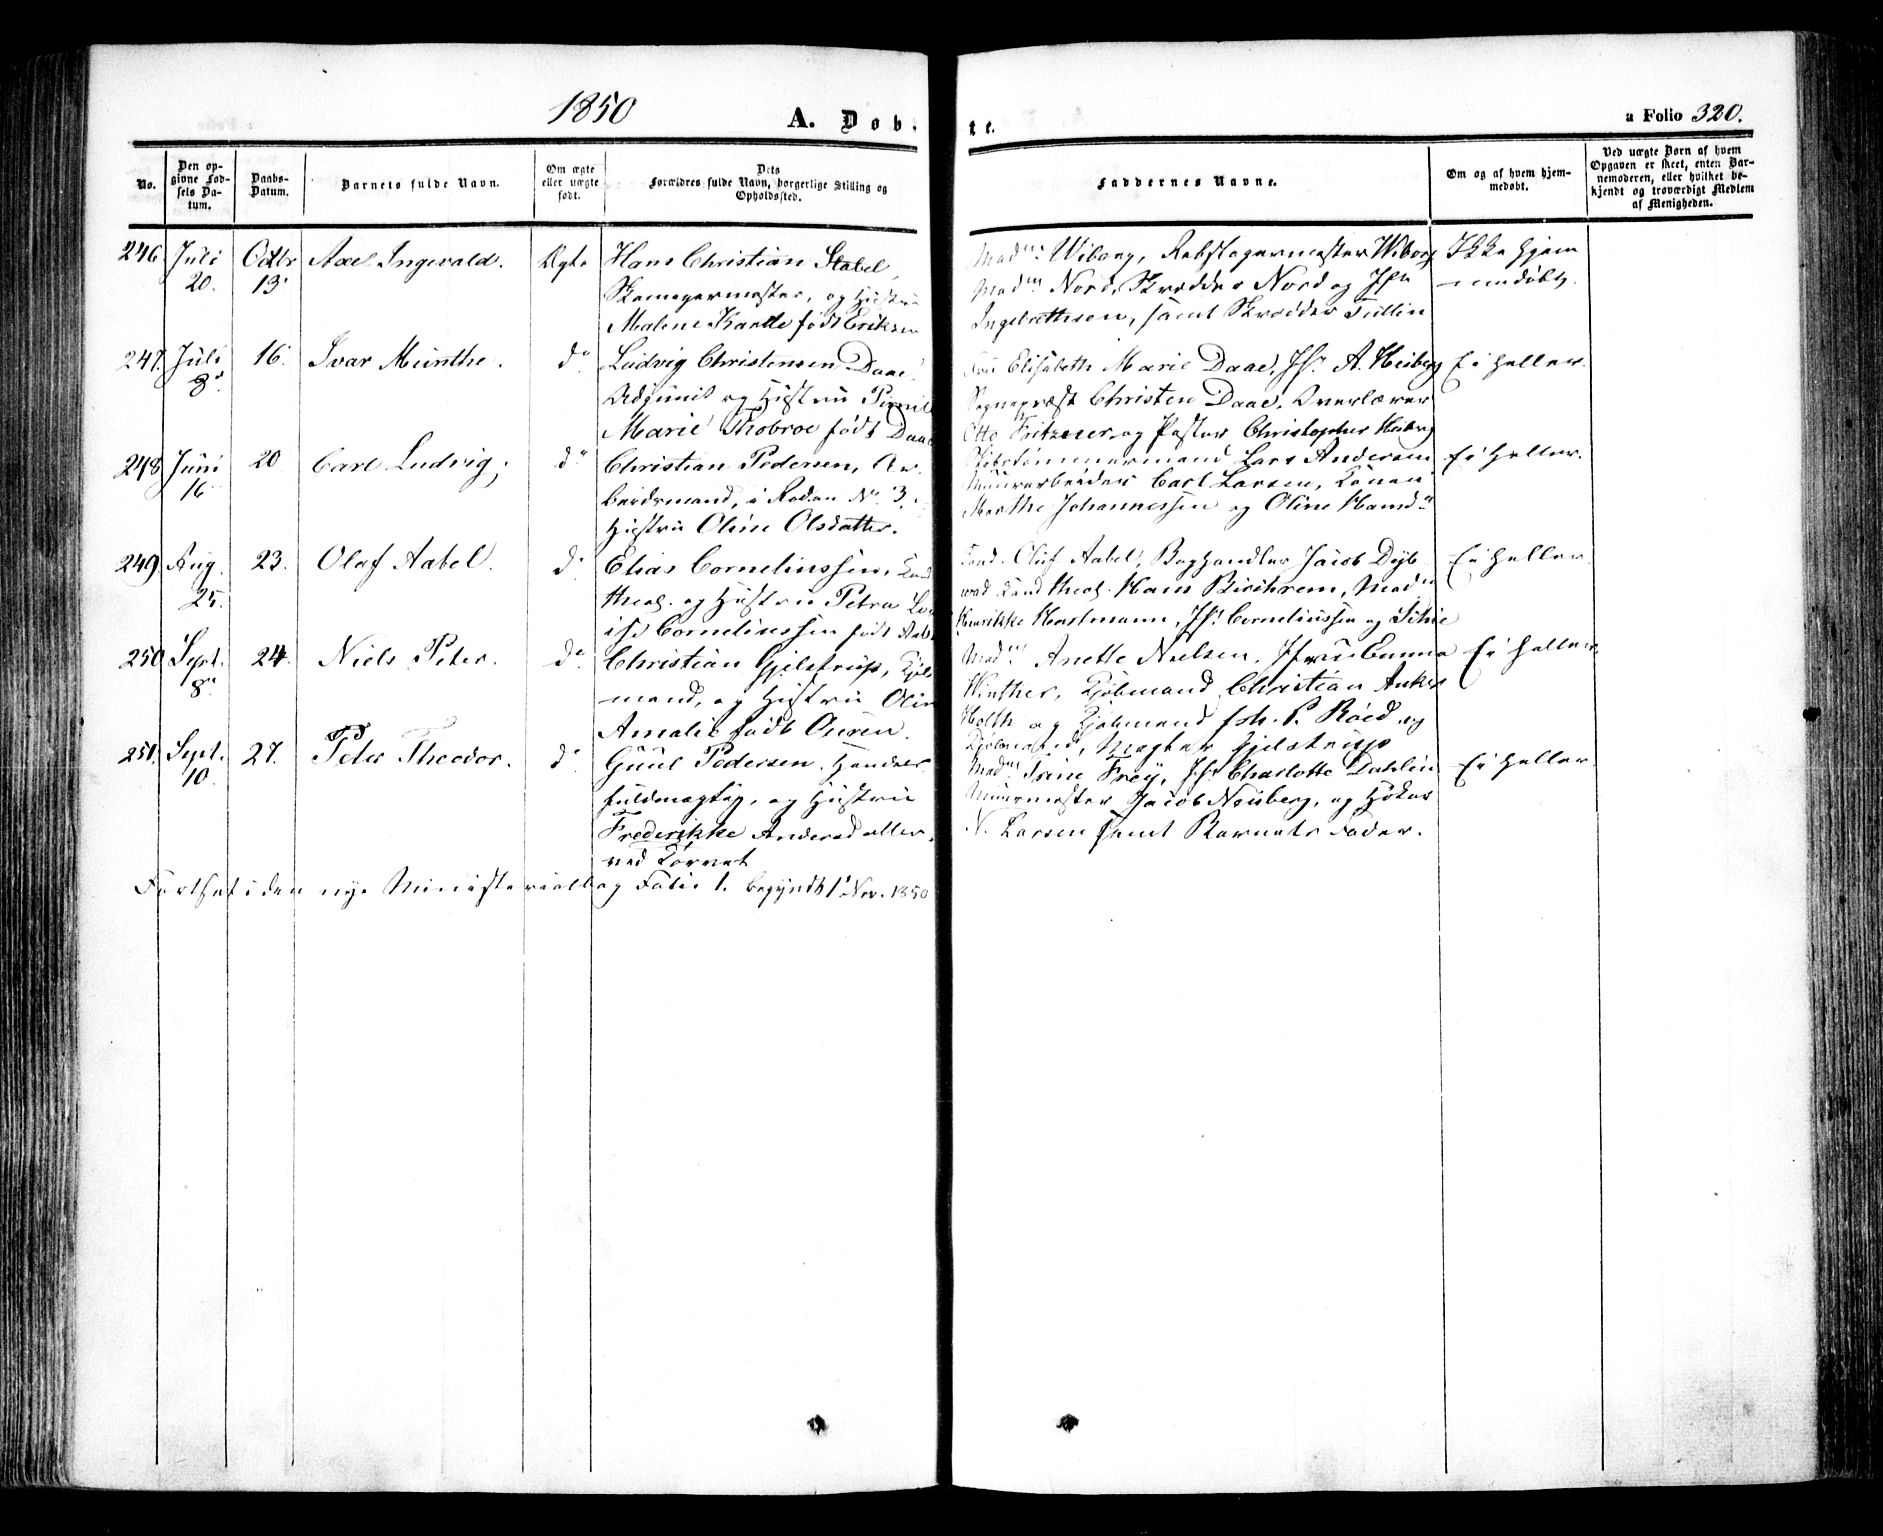 1850
A. Døb-
te.
a Folio 320.
No.
Den op-
givne Fød-
sels Da-
tum.
Daabs-
Datum.
Barnets fulde Navn.
Om ægte
eller uægte
født.
Dets
Forældres fulde Navn, borgerlige Stilling og
Opholdssted.
Faddernes Navne.
Om og af hvem hjem-
medøbt.
Ved uægte Børn af hvem
Opgaven er skeet, enten Bar-
nemoderen, eller hvilket be-
kjendt og troværdigt Medlem
af Menigheden.
246 Juli 20. Octbr 13. Axel Ingevald. Ægte Hans Christian Stabel,
Skomagermester, og Hustru
Malene Kathe født Eriksen
Madm Wiborg, Rebslagermester Wiborg
Madm Nord, Skrædder Nord og Jfr
Ingebrethsen, samt Skrædder Tullin
Ikke hjem
medøbt.
247. Juli 8. 16. Ivar Munthe. do Ludvig Christensen Daae,
Adjunct og Hustru
Marie Thobroe født Daae
Fru Elisabeth Marie Daae, Jfr. A. Heiberg
Sognepræst Christen Daae, Overlærer
Otto Fritzner, og Pastor Christopher Heiberg
Ei heller.
248 Juni 16 20 Carl Ludvig, do Christian Pedersen, Ar-
beidsmand, i Roden No 3.
Hustru Oline Olsdatter.
Lars Andersen
Muurarbeider Carl Larsen, Konen
Marthe Johannessen og Oline Hansd.
Ei heller.
249. Aug. 25. 23. Olaf Aabel. do Elias Corneliussen, Cand
theol. og Hustru Petra Lov
ise Corneliussen født Aabel
Cand. Oluf Aabel, Boghandler Jacob Dyb
wad Cand theol. Hans Birchrem, Madm
Henrikke Hartmann, Jfr Corneliussen og
Ei heller.
250 Sept. 8. 24. Niels Peter. do Christian Gjelstrup, Kjøb
mand, og Hustru Olin
Amalie født Ouren.
Madm Anette Nielsen, Jfru Emma
Winther, Kjøbmand Christian Anker
Holth og Kjøbmand Joh. P. Röed, og
Kjøbmand, Mægler Gjelstrup
Ei heller.
251. Sept. 10. 27. Peter Theodor. do Guul Pedersen. Handels
fuldmægtig, og Hustru
Frederikke Andersdatter.
ved Torvet
Madm Trine Frey, Jfr Charlotte Dahlin
Muurmester Jacob Neuberg, og Høker
N. Larsen samt Barnets Fader.
Ei heller
Fortsat i den nye Ministerialbog Folio 1. begyndt 1 Nov. 1850